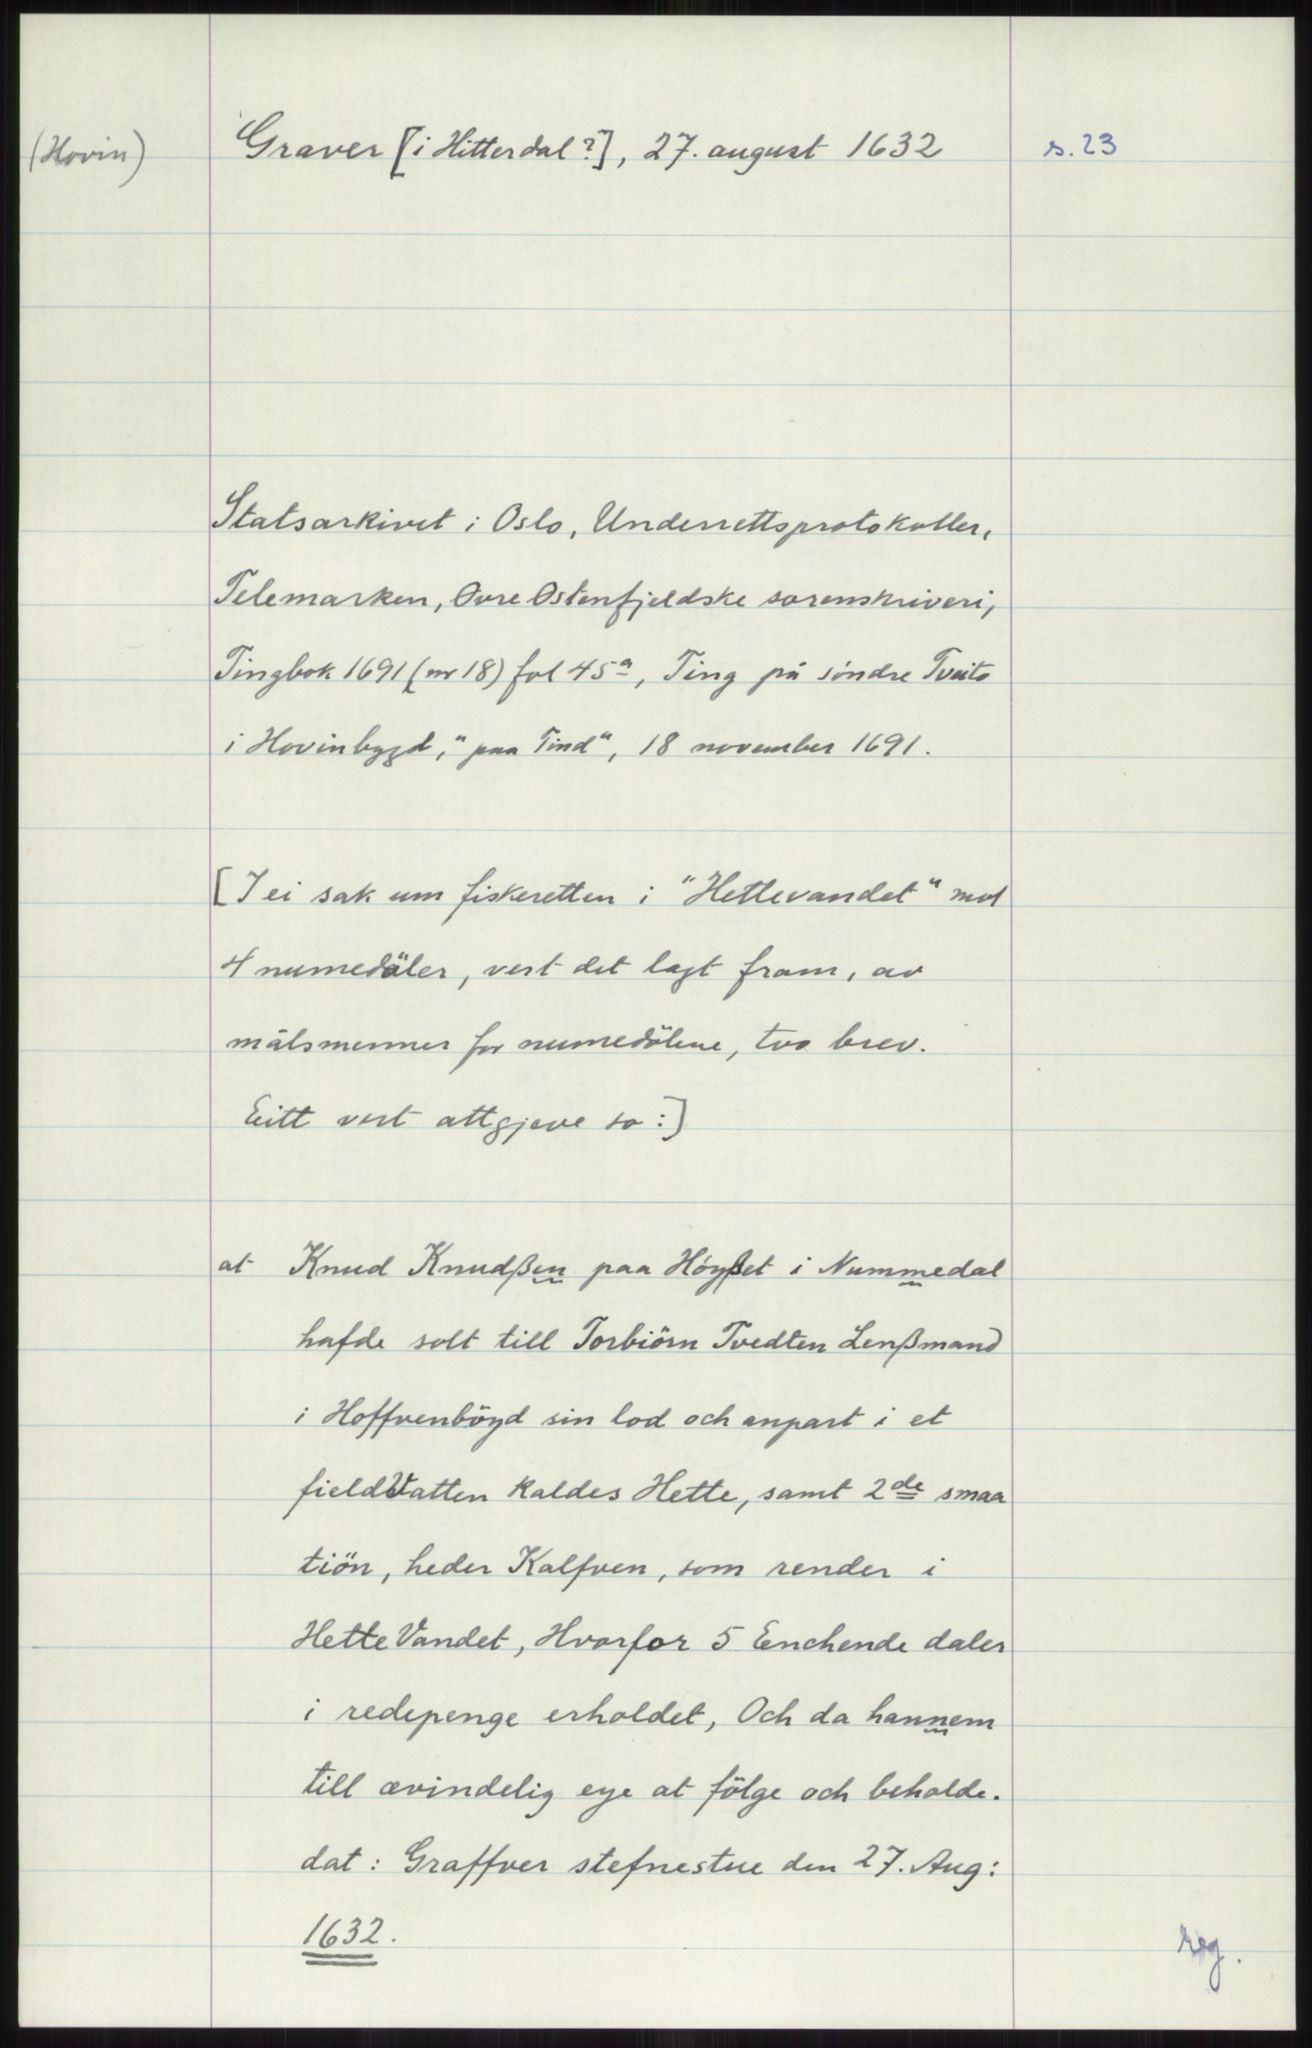 (Hovin)
Graver [i Hitterdal?], 27. august 1632
s. 23
Statsarkivet i Oslo, Underrettsprotokoller,
Telemarken, Øvre Østenfjeldske sorenskriveri,
Tingbok 1691 (nr 18) fol 45a, Ting på söndre Tveito
i Hovinbygd, "paa Tind", 18 november 1691.
[I ei sak um fiskeretten i "Hettevandet" mot
4 numedöler, vert det lagt fram, av
målsmennen for numedölene, tvo brev.
Eitt vert attgjeve so:]
at Knud Knudßen paa Höyßet i Nummedal
hafde solt till Torbiörn Tvedten Lenßmand
i Hoffvenböyd sin lod och anpart i et
fieldVatten kaldes Hette, samt 2de smaa
tiön, heder Kalfven, som render i
Hette Vandet, Hvorfor 5 Enchende daler
i redepenge erholdet, Och da hannem
till ævindelig eye at fölge och beholde.
dat: Graffver stefnestue den 27. Aug:
1632.
reg.